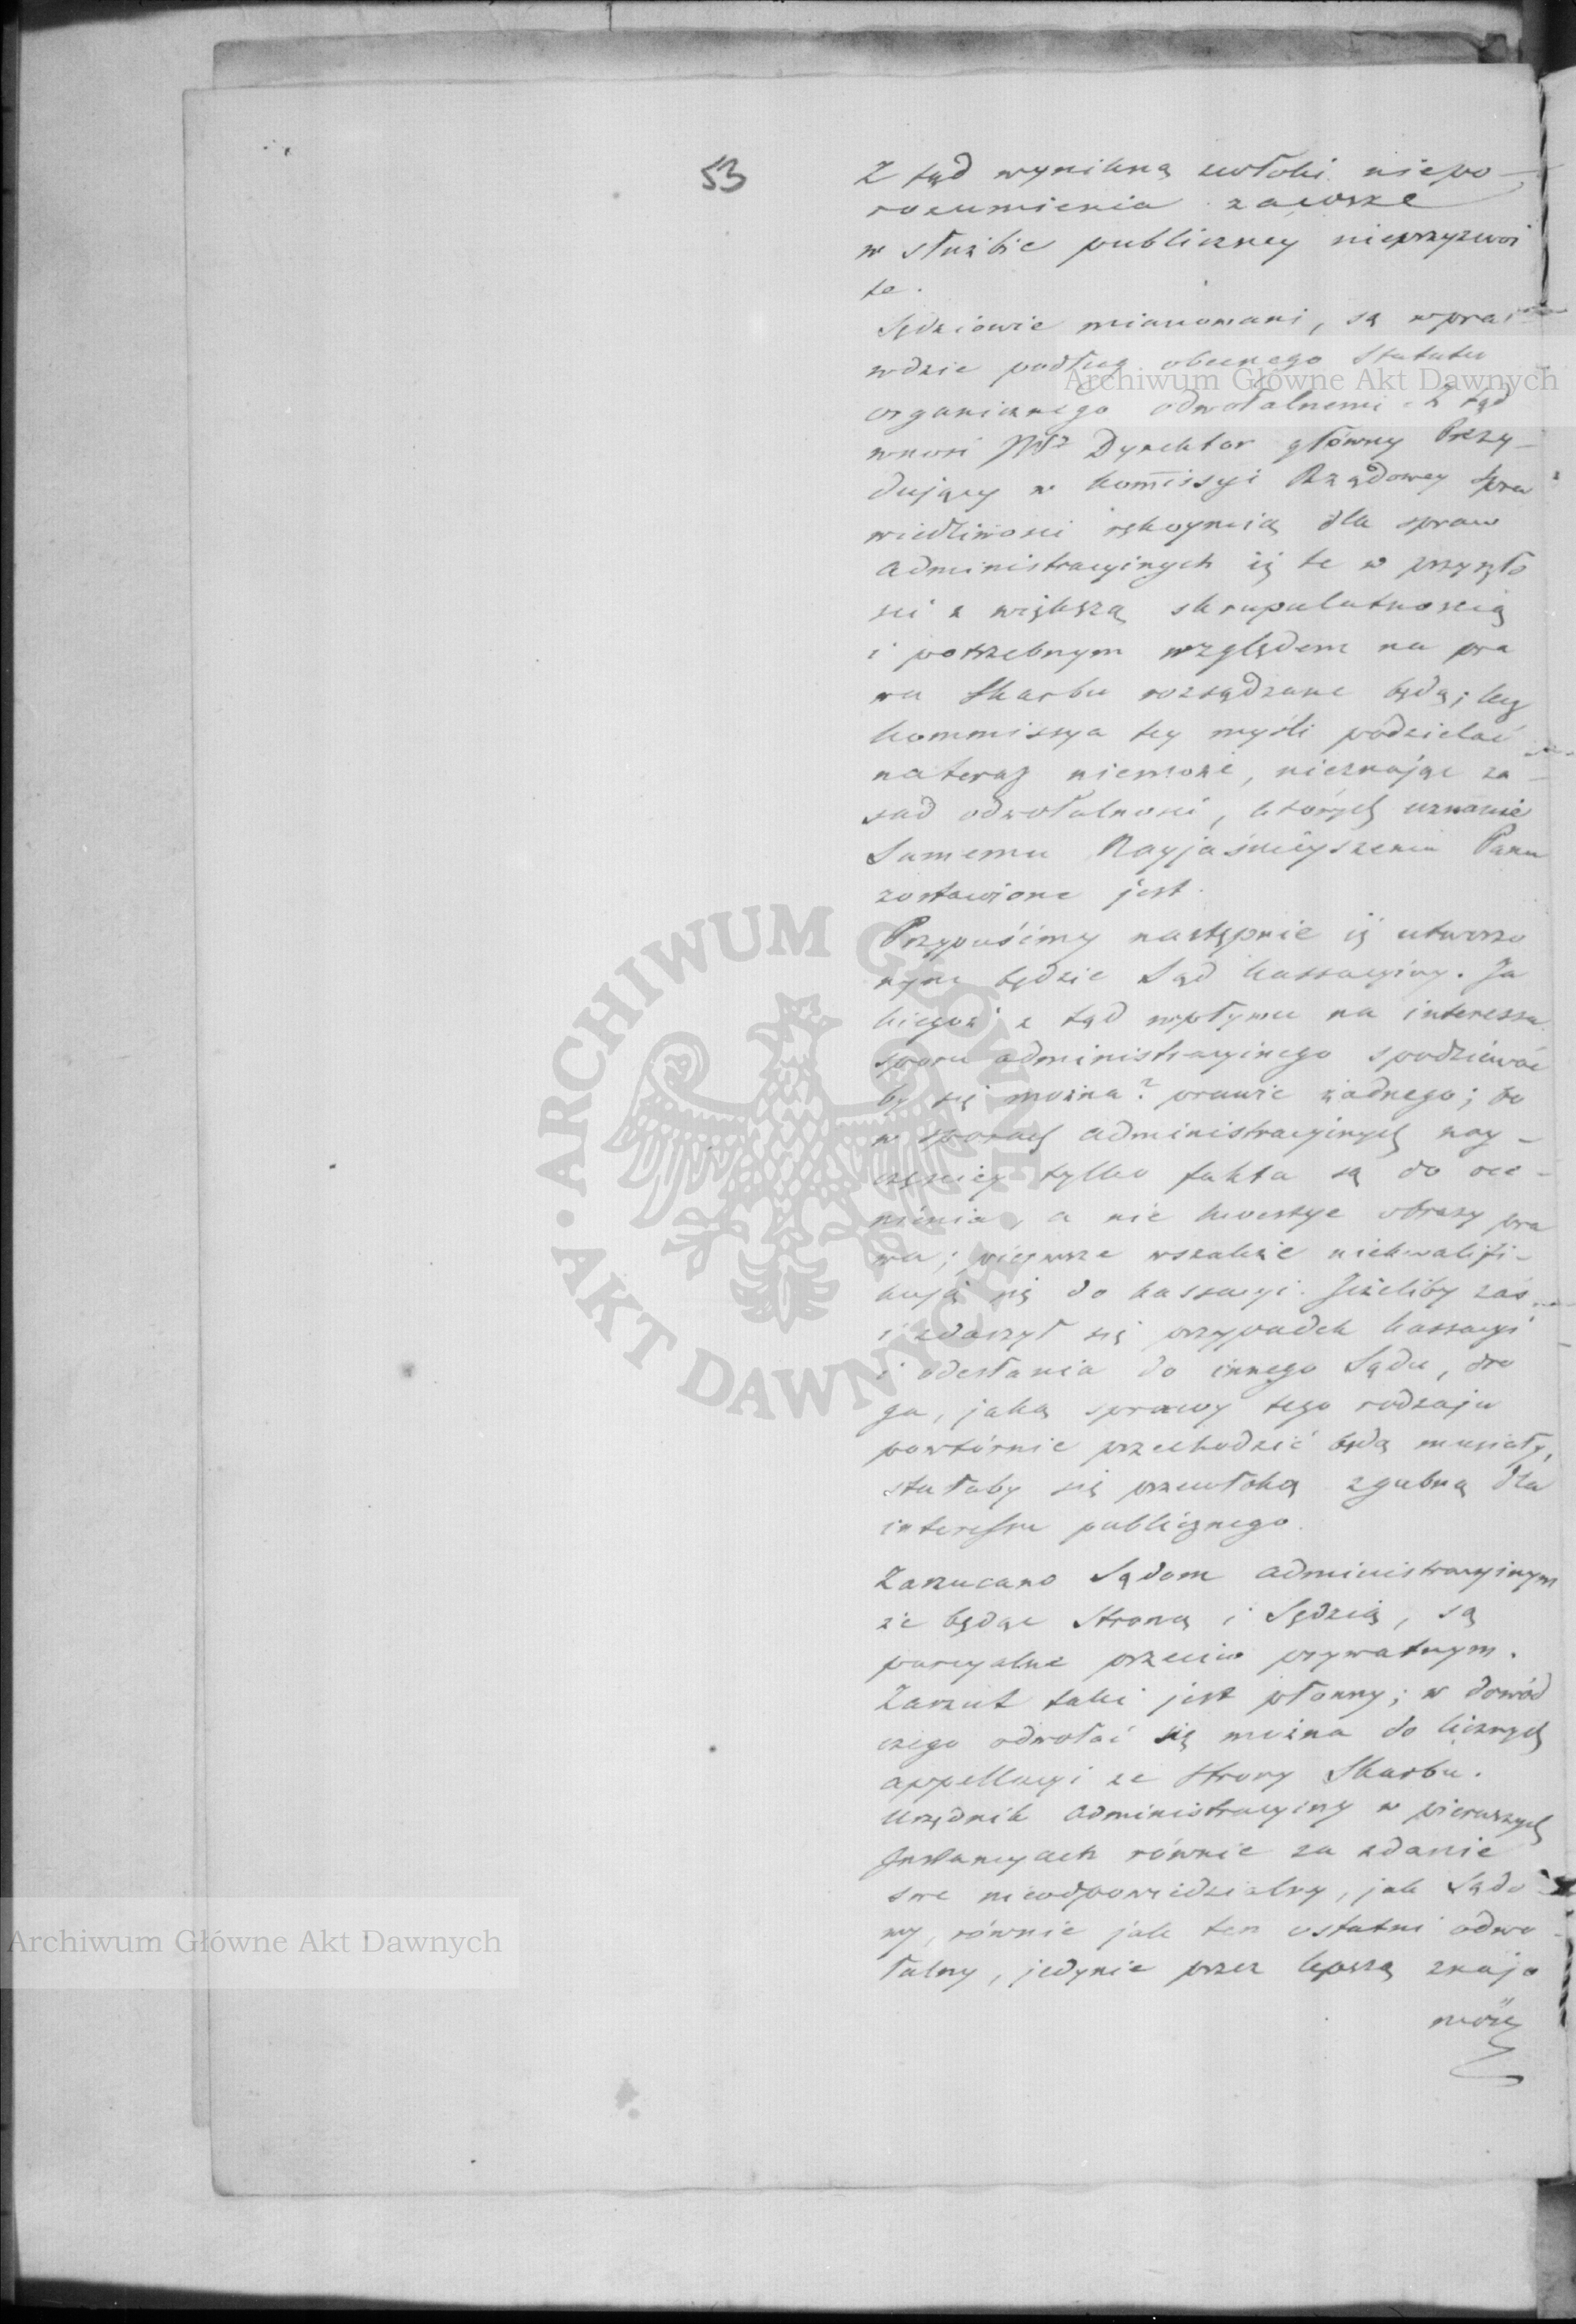 53
Z tąd wynikną zwłoki niepo-
rozumienia zawsze
w służbie publiczney nieprzyzwoi
te.
Sędziowie mianowani, są wpra-
wdzie podług obecnego Statutu
organicznego odwołalnemi. Z tąd
wnosi JW Dyrektor główny Prezy-
dujący w Kommissyi Rządowey Spra
wiedliwości rękoymią dla spraw
administracyinych iż te w przyszło
ści z większą skrupulatnością
i potrzebnym względem na pra
wa Skarbu rozsądzane będą; lecz
Kommissya tey myśli podzielać
nateraz niemoże, nieznając za-
sad odwołalności, których uznanie
Samemu Nayjaśnieyszemu Panu
zostawione jest.
Przypuśćmy następnie iż utworzo
nym będzie Sąd Kassacyiny. Ja
kiegoż z tąd wpływu na interessa
sporu administracyinego spodziewać
by się można? prawie żadnego; bo
w sporach administracyinych nay-
częściey tylko fakta są do oce-
nienia, a nie kwestye obrazy pra
wa; pierwsze wszakże niekwalifi-
kują się do kassacyi. Jeżeliby zaś
i zdarzył się przypadek kassacyi
i odesłania do innego Sądu, dro
ga, jaką sprawy tego rodzaju
powtórnie przechodzić będą musiały,
stałaby się przewłoką zgubną dla
interessu publicznego.
Zarzucano Sądom administracyinym
że będąc Stroną i Sędzią, są
parcyalne przeciw prywatnym.
Zarzut taki jest płonny; w dowód
czego odwołać się można do licznych
appellacyi ze strony Skarbu.
Urzędnik administracyiny w pierwszych
Instancyach równie za zdanie
swe nieodpowiedzialny, jak Sądo
wy, równie jak ten ostatni odwo-
łalny, jedynie przez lepszą znajo
mość
Archiwum Główne Akt Dawnych
ARCHIWUM GŁÓWNE AKT DAWNYCH
Archiwum Główne Akt Dawnych